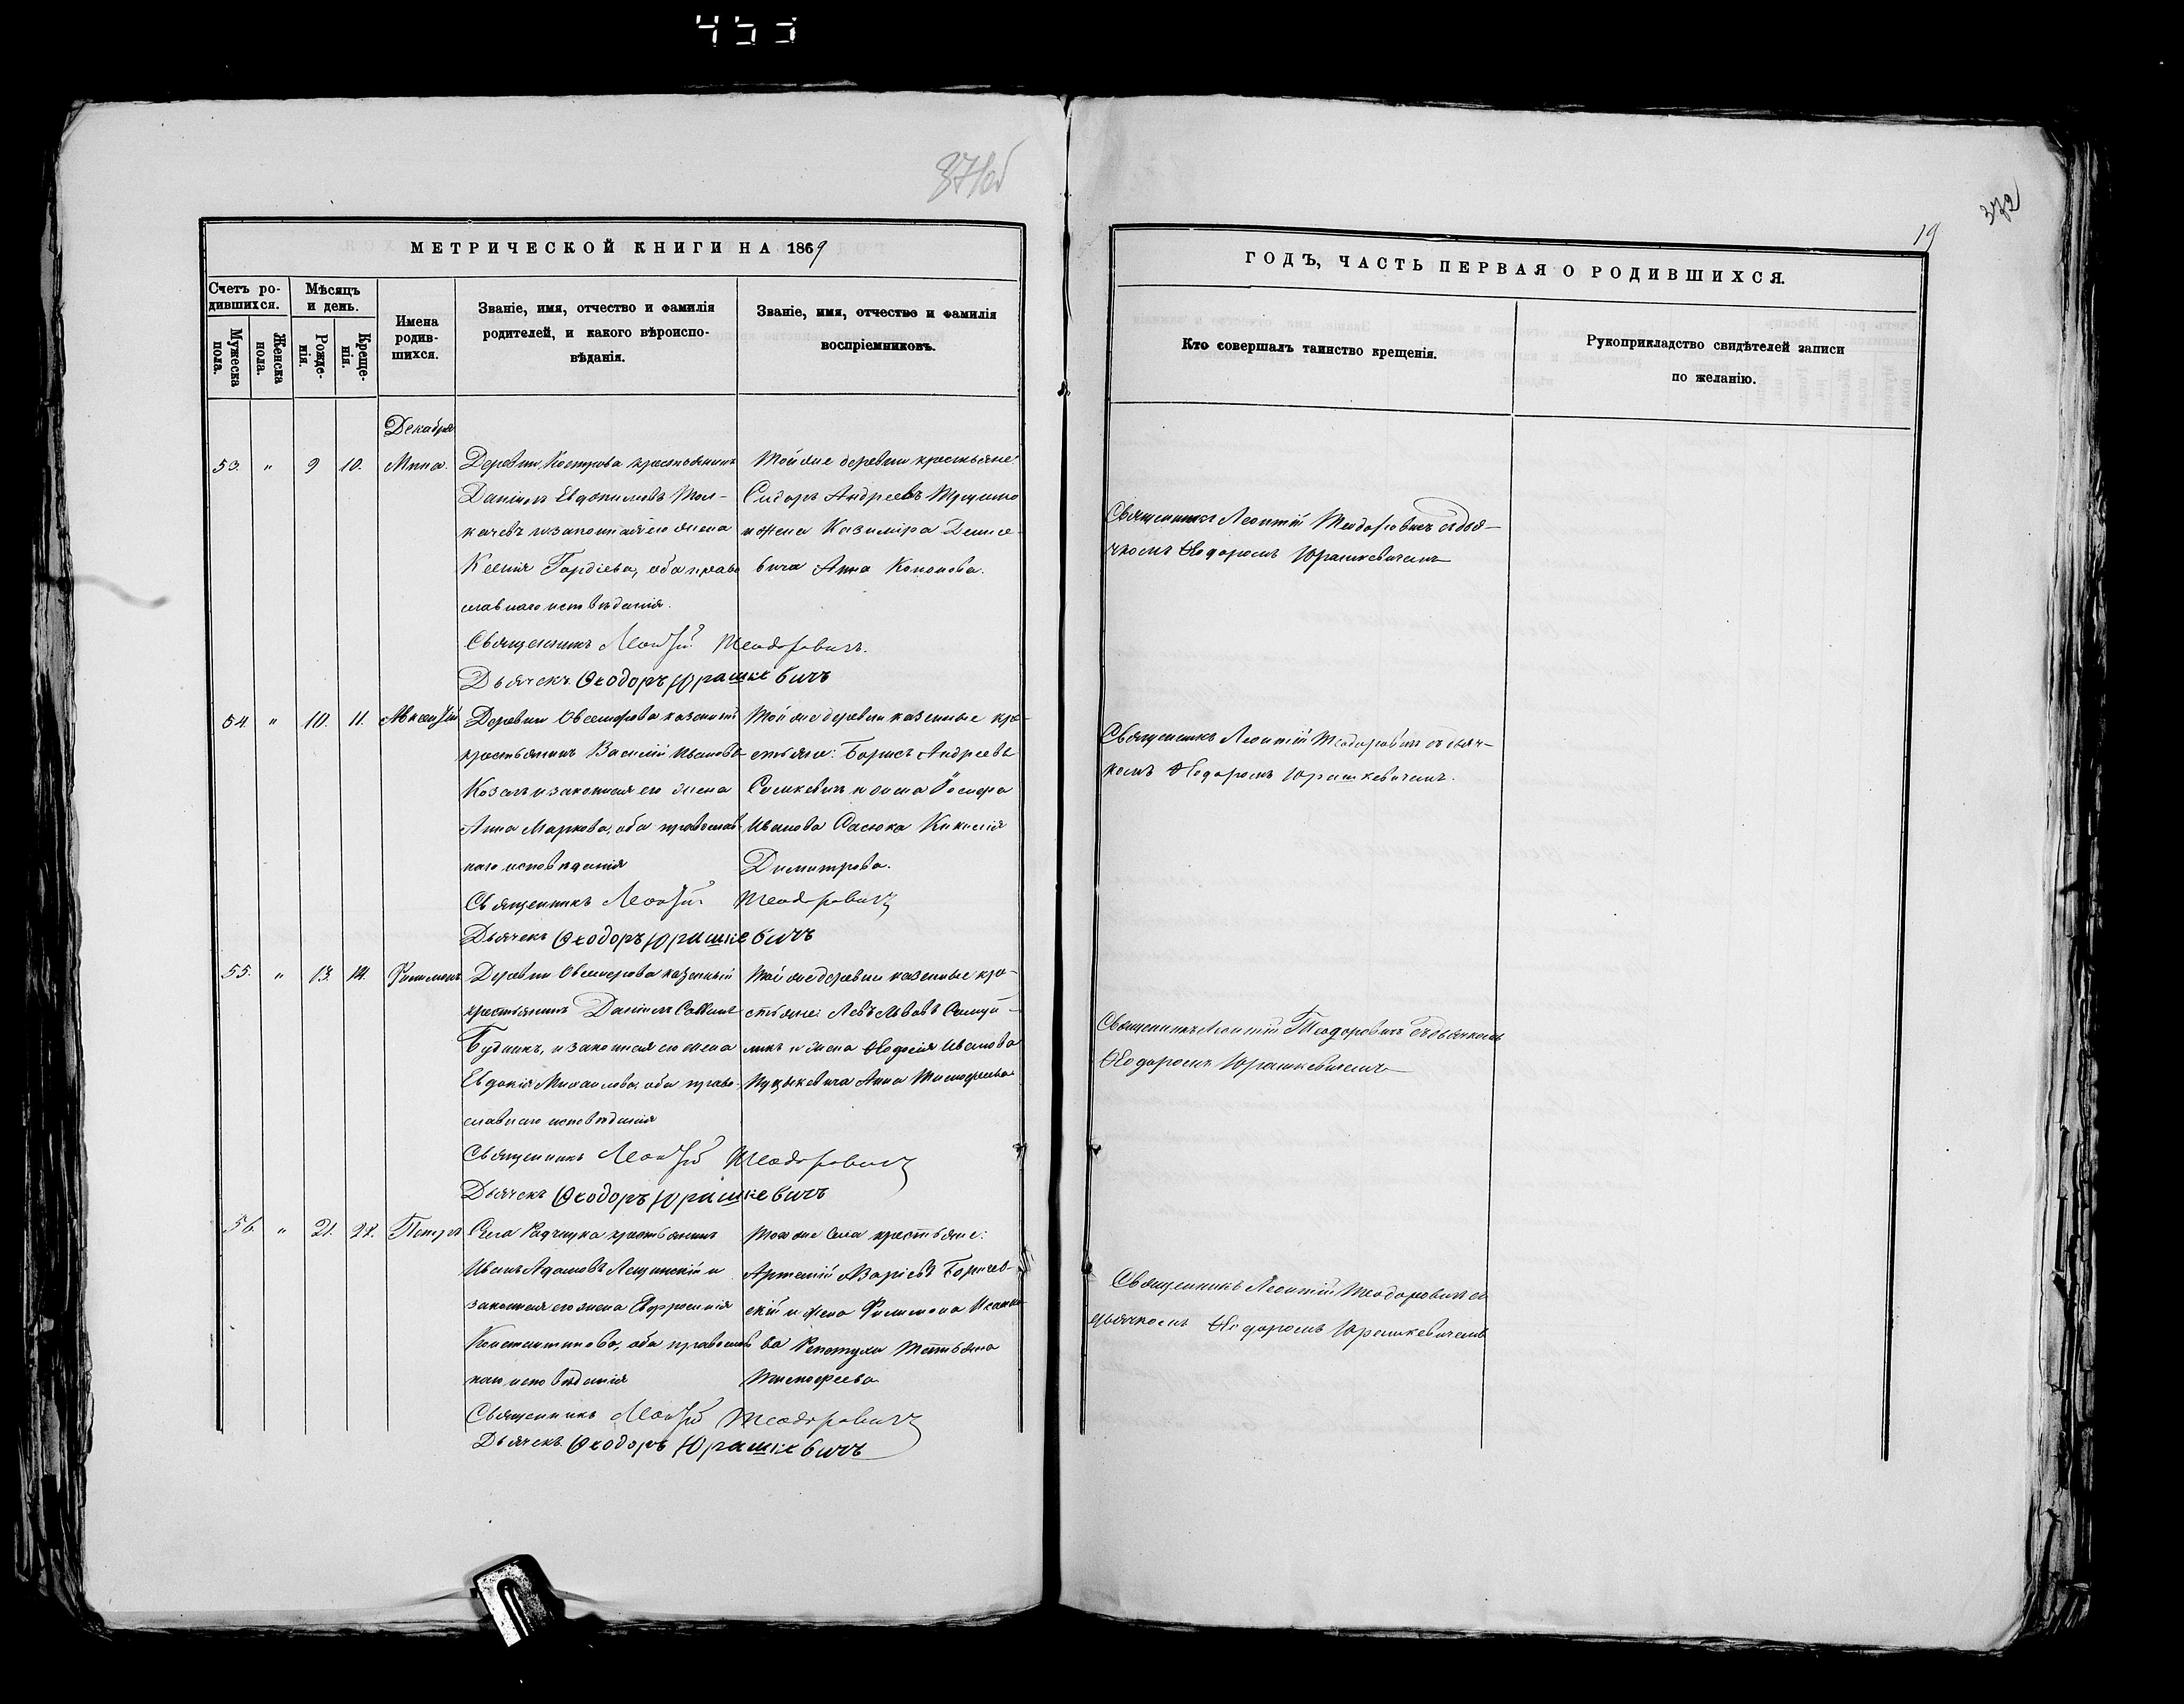 453
371об
МЕТРИЧЕСКОЙ КНИГИ НА 1869
Счетъ родившихся.
Мѣсяцъ и день.
Имена родившихся.
Званіе, имя, отчество и фамилія родителей, и какого вѣроисповѣданія.
Званіе, имя, отчество и фамилія воспріемниковъ.
Мужеска пола.
Женска пола.
Рожденія.
Крещенія.
Декабря
53. " 9 10. Мина.
Деревни Кострова крестьянинъ
Даніилъ Евдокимовъ Тол-
качевъ и законная его жена
Ксенія Гордіева, оба право
славнаго исповѣданія.
Той же деревни крестьяне:
Сидоръ Андреевъ
и жена Казиміра Денисе-
вича Анна Кононова.
Священникъ Леонтій Теодоровичъ.
Дьячекъ Ѳеодоръ Юрашкевичъ
54. " 10. 11. Авксентій
Деревни казенный
крестьянинъ Василій Ивановъ
Козелъ и законная его жена
Анна Маркова, оба православ-
наго исповѣданія
Той же деревни казенные кре-
стьяне: Борисъ Андреевъ
и жена Іосифа
Иванова Сасюка Кикилія
Димитрова.
Священникъ Леонтій Теодоровичъ
Дьячекъ Ѳеодоръ Юрашкевичъ
55. " 13. 14. Филимонъ
Деревни казенный
крестьянинъ Даніилъ Саввинъ
Будникъ, и законная его жена
Евдокія Михаилова, оба право-
славнаго исповѣданія
Той же деревни казенные кре-
стьяне: Левъ Львовъ Самуй-
ликъ и жена Ѳеодосія Иванова
Анна Тимофеева
Священникъ Леонтій Теодоровичъ
Дьячекъ Ѳеодоръ Юрашкевичъ
56. " 21. 22. Петръ
Села Радчицка крестьянинъ
Иванъ Адамовъ Лещинскій и
законная его жена Евфросинія
Константинова, оба православ
наго исповѣданія
Того же села крестьяне:
Артемій Азаріевъ Боричев-
скій и жена Филимона
ва Репетухи Татьяна
Тимофеева
Священникъ Леонтій Теодоровичъ
Дьячекъ Ѳеодоръ Юрашкевичъ
19
372
ГОДЪ, ЧАСТЬ ПЕРВАЯ О РОДИВШИХСЯ.
Кто совершалъ таинство крещенія.
Рукоприкладство свидѣтелей записи по желанію.
Священникъ Леонтій Теодоровичъ съ дья-
чкомъ Ѳеодоромъ Юрашкевичемъ
Священникъ Леонтій Теодоровичъ съ дьяч-
комъ Ѳеодоромъ Юрашкевичемъ.
Священникъ Леонтій Теодоровичъ съ дьячкомъ
Ѳеодоромъ Юрашкевичемъ
Священникъ Леонтій Теодоровичъ съ
дьячкомъ Ѳеодоромъ Юрашкевичемъ